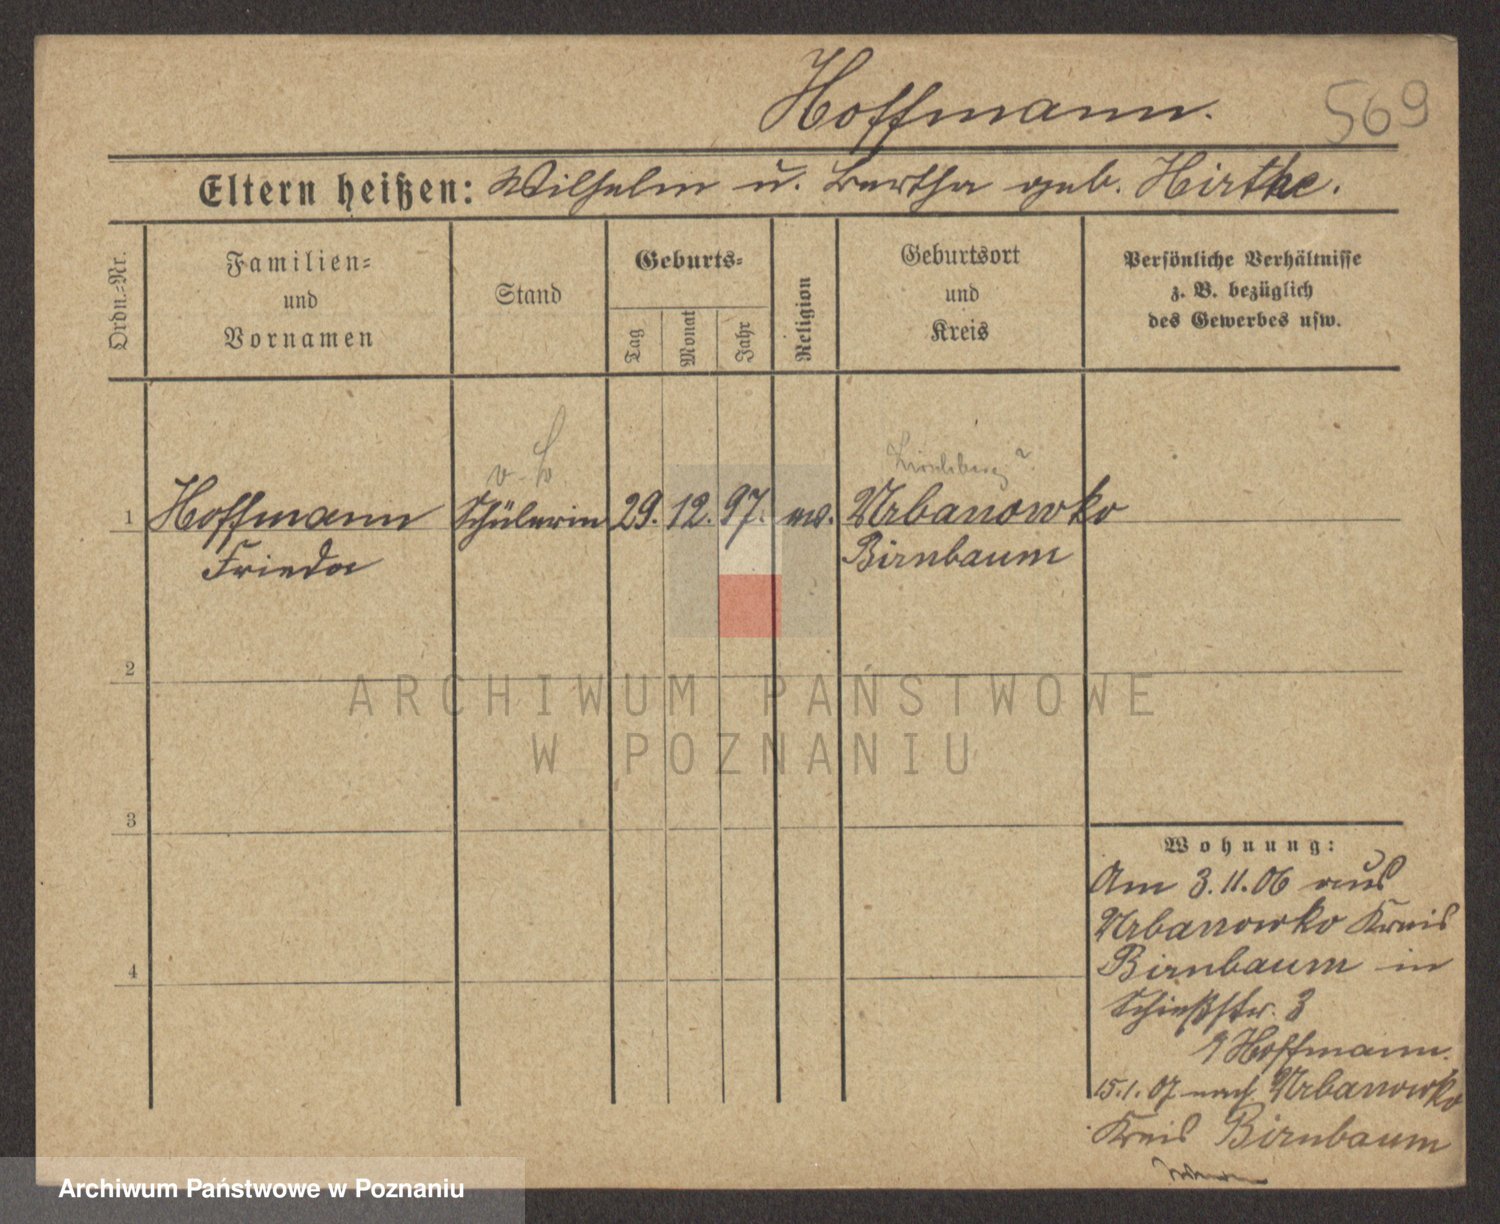 Hoffmann.
569
Eltern heißen: Wilhelm u. Bertha geb. Hirthe.
Ordn.-Nr.
Familien-
und
Vornamen
Stand
Geburts-
Tag
Monat
Jahr
Religion
Geburtsort
und
Kreis
Persönliche Verhältnisse
z. B. bezüglich
des Gewerbes usw.
1 Hoffmann Schülerin 29. 12. 97. ev. Urbanowko
Frieda Birnbaum
2
3
4
Wohnung:
Am 3.11.06 aus
Urbanowko Kreis
Birnbaum in
Schießstr. 3
Hoffmann.
15.1.07 nach Urbanowko
Kreis Birnbaum
ARCHIWUM PAŃSTWOWE
W POZNANIU
Archiwum Państwowe w Poznaniu